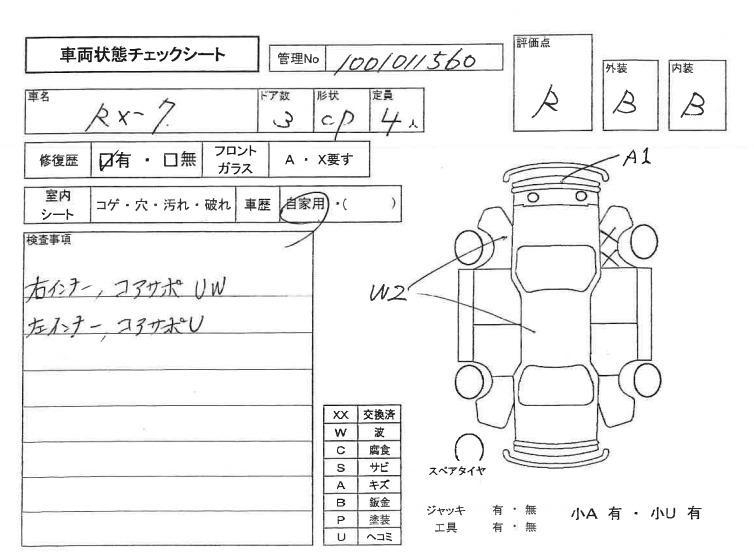 車両状態チェックシート
管理No 1001011560
評価点 R
外装 B
内装 B
車名 RX-7
ドア数 3
形状 CP
定員 4人
修復歴 ☑有・□無
フロントガラス A・X要す
室内シート コゲ・穴・汚れ・破れ
車歴 自家用・( )
検査事項
右インナー, コアサポ UW
左インナー, コアサポ U
A1
W2
XX 交換済
W 波
C 腐食
S サビ
A キズ
B 鈑金
P 塗装
U ヘコミ
スペアタイヤ
ジャッキ 有・無
工具 有・無
小A 有・小U 有